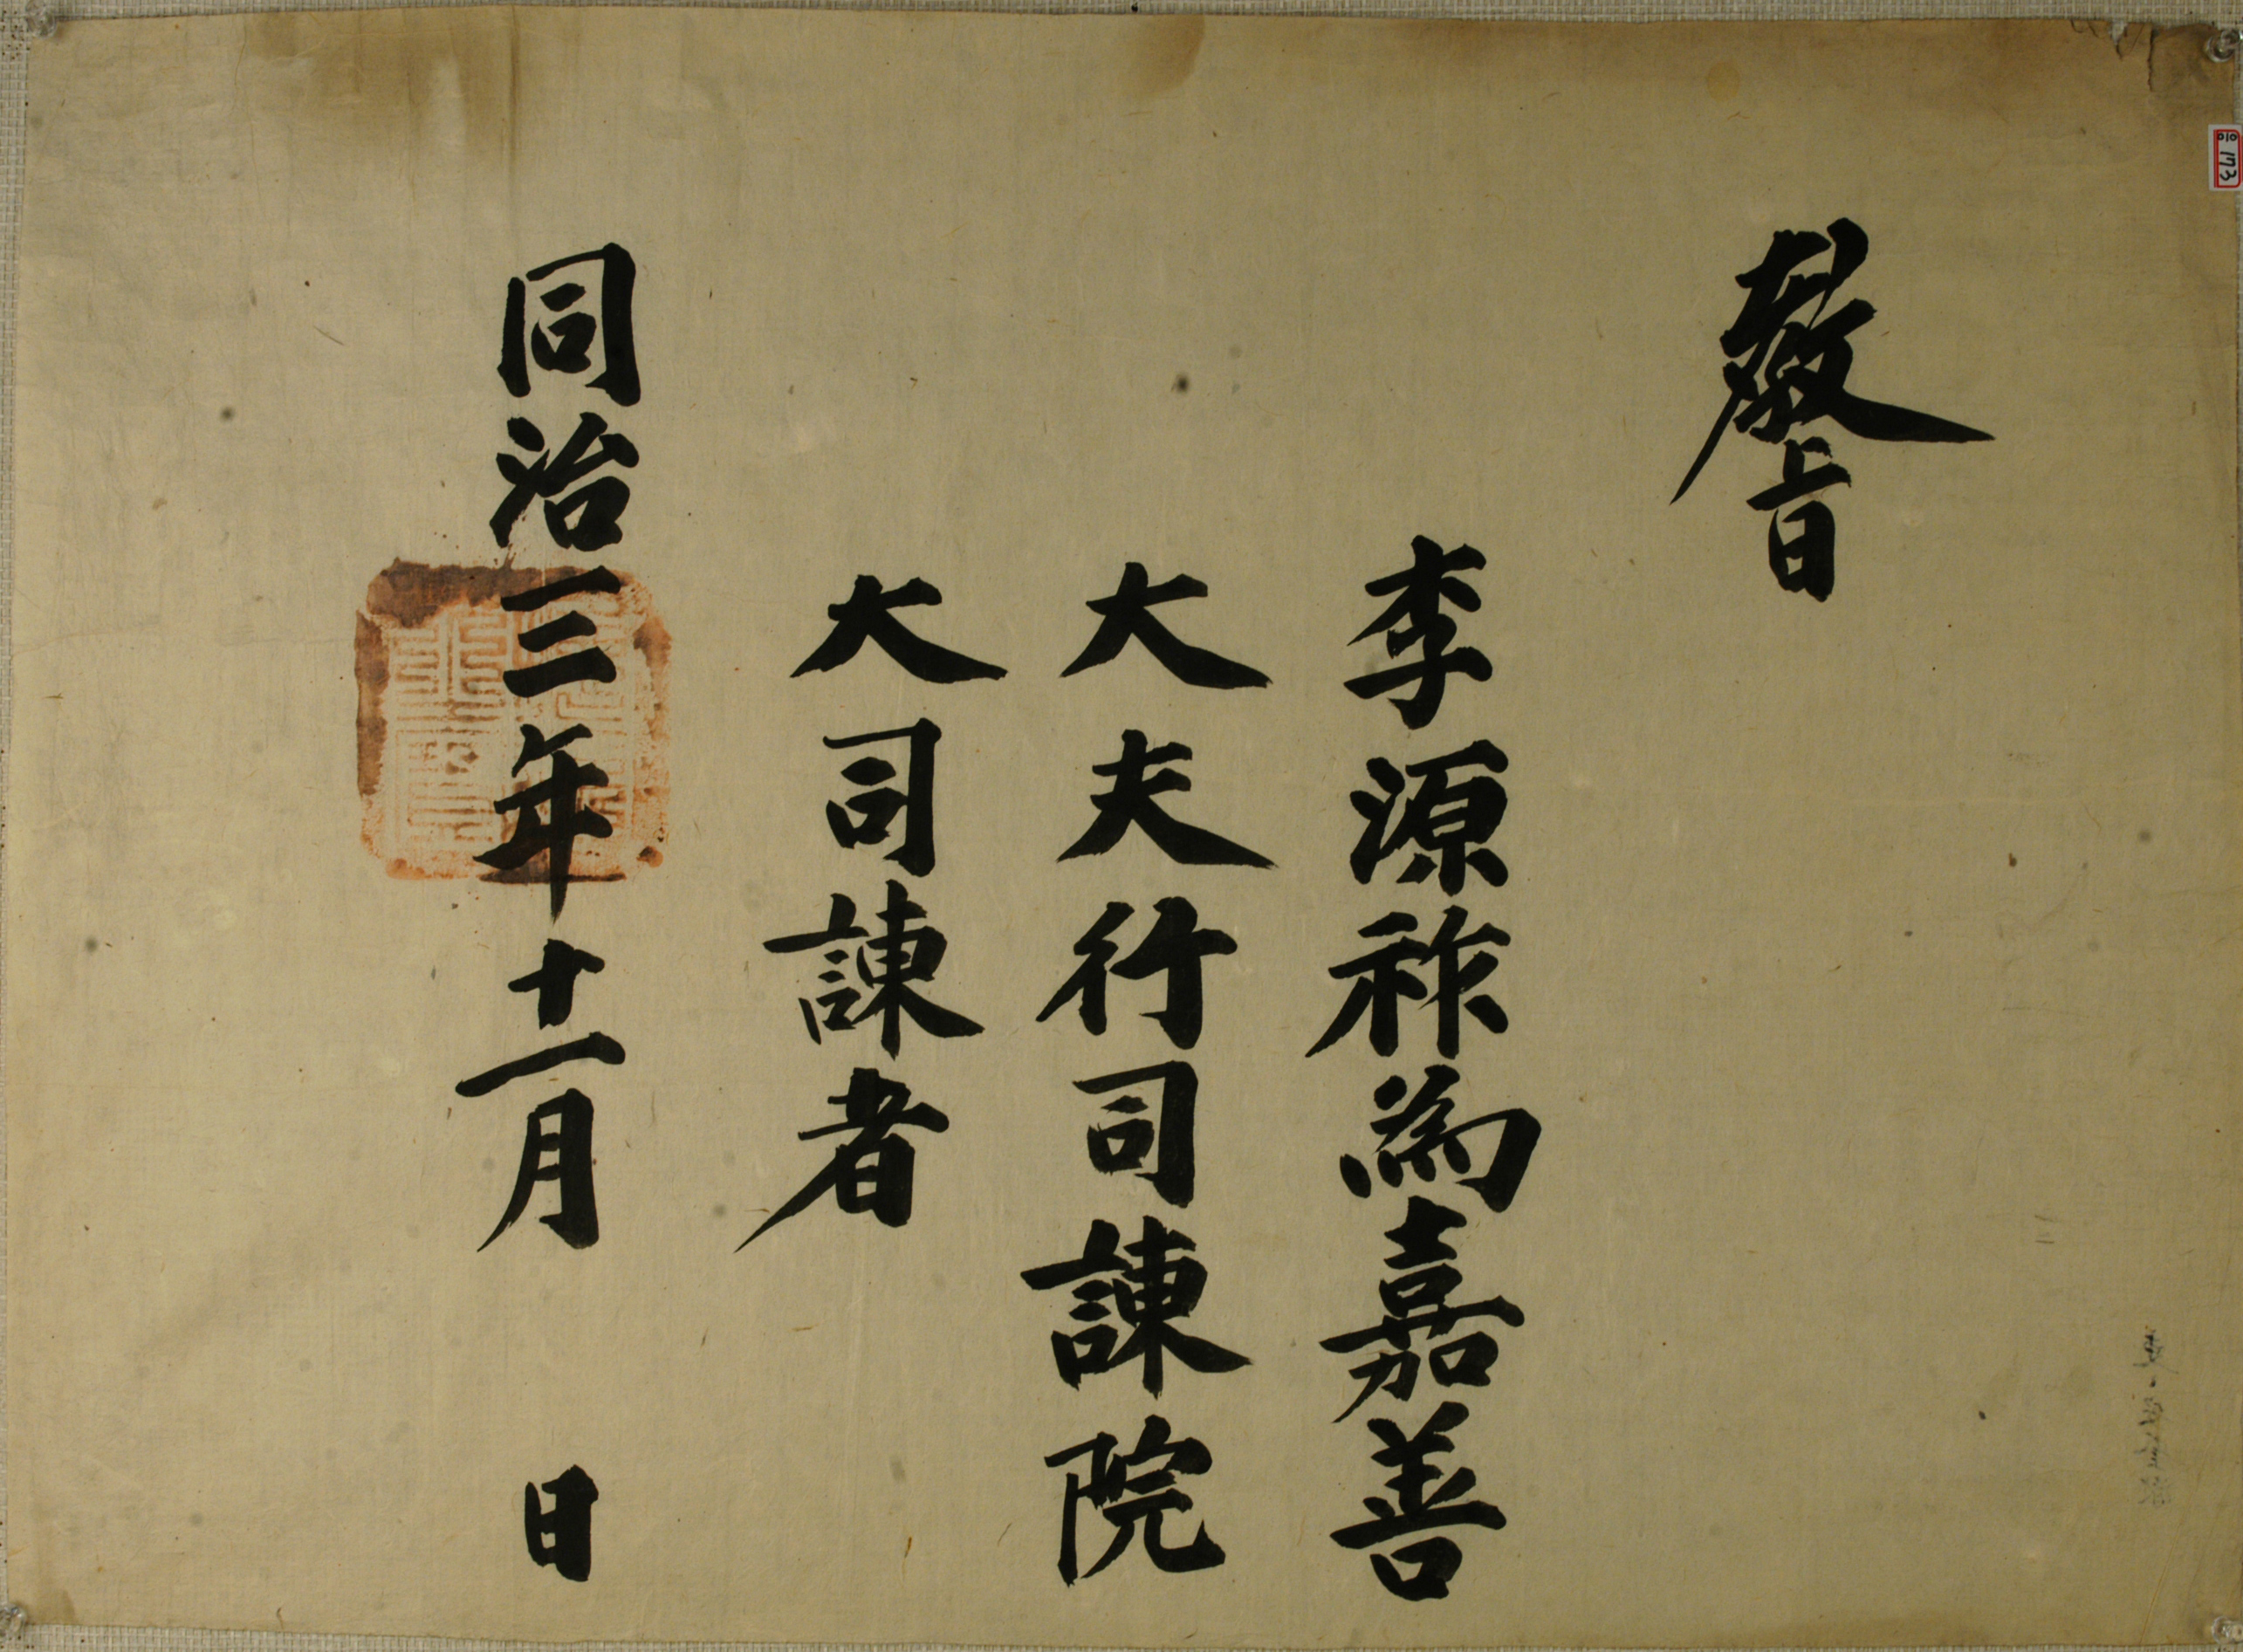 敎旨
李源祚為嘉善
大夫行司諫院
大司諫者
同治三年十一月 日
173